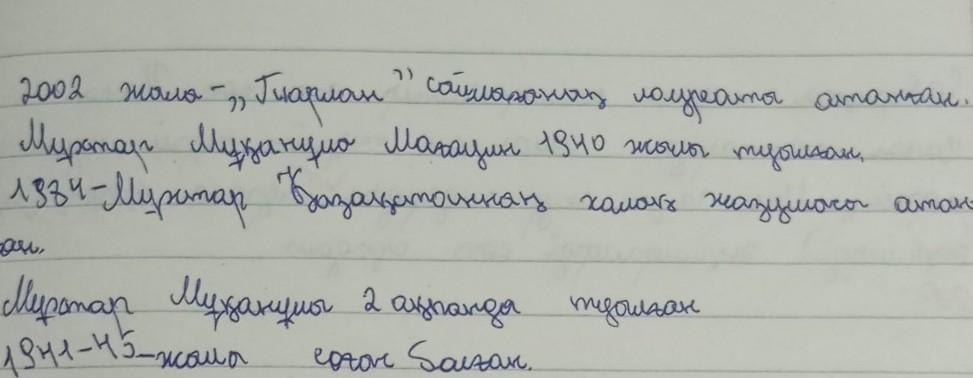 2002 жылы - „Тарлан" сыйлығының лауреаты атанған.
Мұхтар Мұқанұлы Мағауин 1940 жылы туылған.
1984 - Мұхтар Қазақстанның халық жазушысы атан
ған.
Мұхтар Мұқанұлы 2 ақпанда туылған
1941-45-жылы соғыс болған.